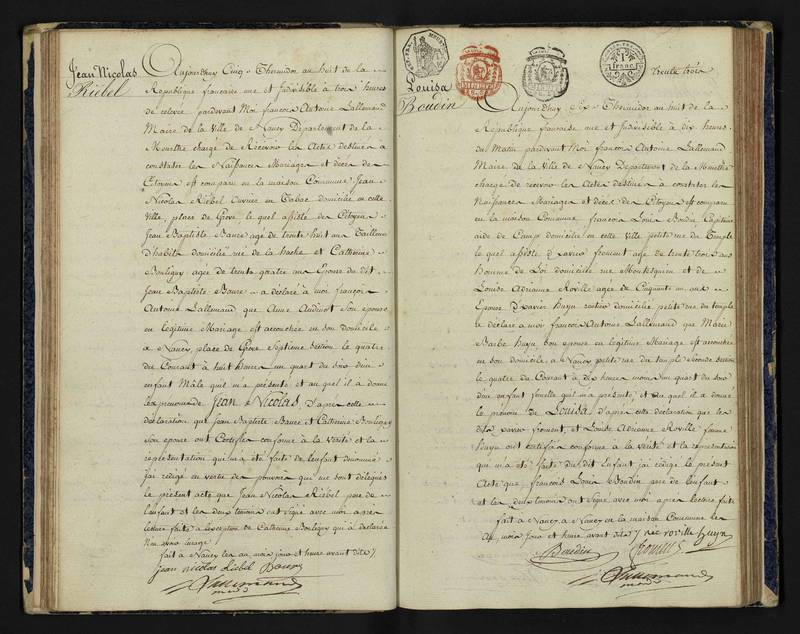 Jean Nicolas
Riebel
Aujourdhuy Cinq Thermidor an huit de la
République française une et Indivisible à trois heures
de relevée pardevant Moi françois Antoine Lallemand
Maire de la Ville de Nancy Département de la
Meurthe chargé de Recevoir les Actes destinés à
constater les Naissances Mariages et décès des
Citoyens est comparu en la maison Commune Jean
Nicolas Riebel Ouvrier en Tabac domicilié en cette
Ville, place de Grève, le quel assisté des Citoyens
Jean Baptiste Baure agé de trente huit ans Tailleur
D'habits domicilié rue de la hache et Catherine
Bouligny agée de trente quatre ans Epouse du dit
Jean Baptiste Baure a déclaré à moi françois
Antoine Lallemand que Anne Audinot Son épouse
en legitime Mariage est accouchée en son domicile
à Nancy, place de Grève Septieme Section le quatre
du Courant à huit heures un quart du soir d'un
enfant Mâle qu'il m'a présenté et au quel il a donné
les prénoms de Jean Nicolas, D'après cette
déclaration que Jean Baptiste Baure et Catherine Bouligny
son épouse ont Certifiée conforme à la Vérité et la
représentation qui m'a été faite de l'enfant dénommé
j'ai rédigé en vertu des pouvoirs qui me sont délégués
le présent acte que Jean Nicolas Riebel père de
l'enfant et les deux témoins ont Signé avec moi après
lecture faite à l'exception de Catherine Bouligny qui a déclaré
fait à Nancy les an, mois jour et heure avant dits
jean nicolas Riebel Baure
Lallemand
maire
1
franc
trente trois
Louisa
Boudin
Aujourdhuy Six Thermidor an huit de la
République française une et Indivisible à dix heures
du Matin pardevant Moi françois Antoine Lallemand
Maire de la Ville de Nancy Département de la Meurthe
chargé de recevoir les Actes destinés à constater les
Naissances Mariages et décès des Citoyens est comparu
en la maison Commune, françois Louis Boudin Capitaine
aide de Camp domicilié en cette Ville petite rue du Temple
le quel assisté de froment agé de trente trois ans
homme de Loi domicilié rue Montesquieu et de
Louise Adrianne Roville agée de Cinquante un ans
Epouse de domicilié petite rue du temple
a déclaré à moi françois Antoine Lallemand que Marie
Barbe son épouse en legitime Mariage est accouchée
en son domicile à Nancy petite rue du temple Seconde Section
le quatre du Courant à dix heures moins un quart du soir
d'un enfant femelle qu'il m'a présenté et au quel il a donné
le prénom de Louisa, d'après cette déclaration que les
froment, et Louise Adrianne Roville femme
ont certifiée conforme à la Vérité et la représentation
qui m'a été faite du dit Enfant j'ai rédigé le présent
Acte que françois Louis Boudin père de l'enfant
et les deux témoins ont Signé avec moi après lecture faite
fait à Nancy à Nancy en la maison Commune les
an, mois jour et heure avant dits
Boudin
Lallemand
maire